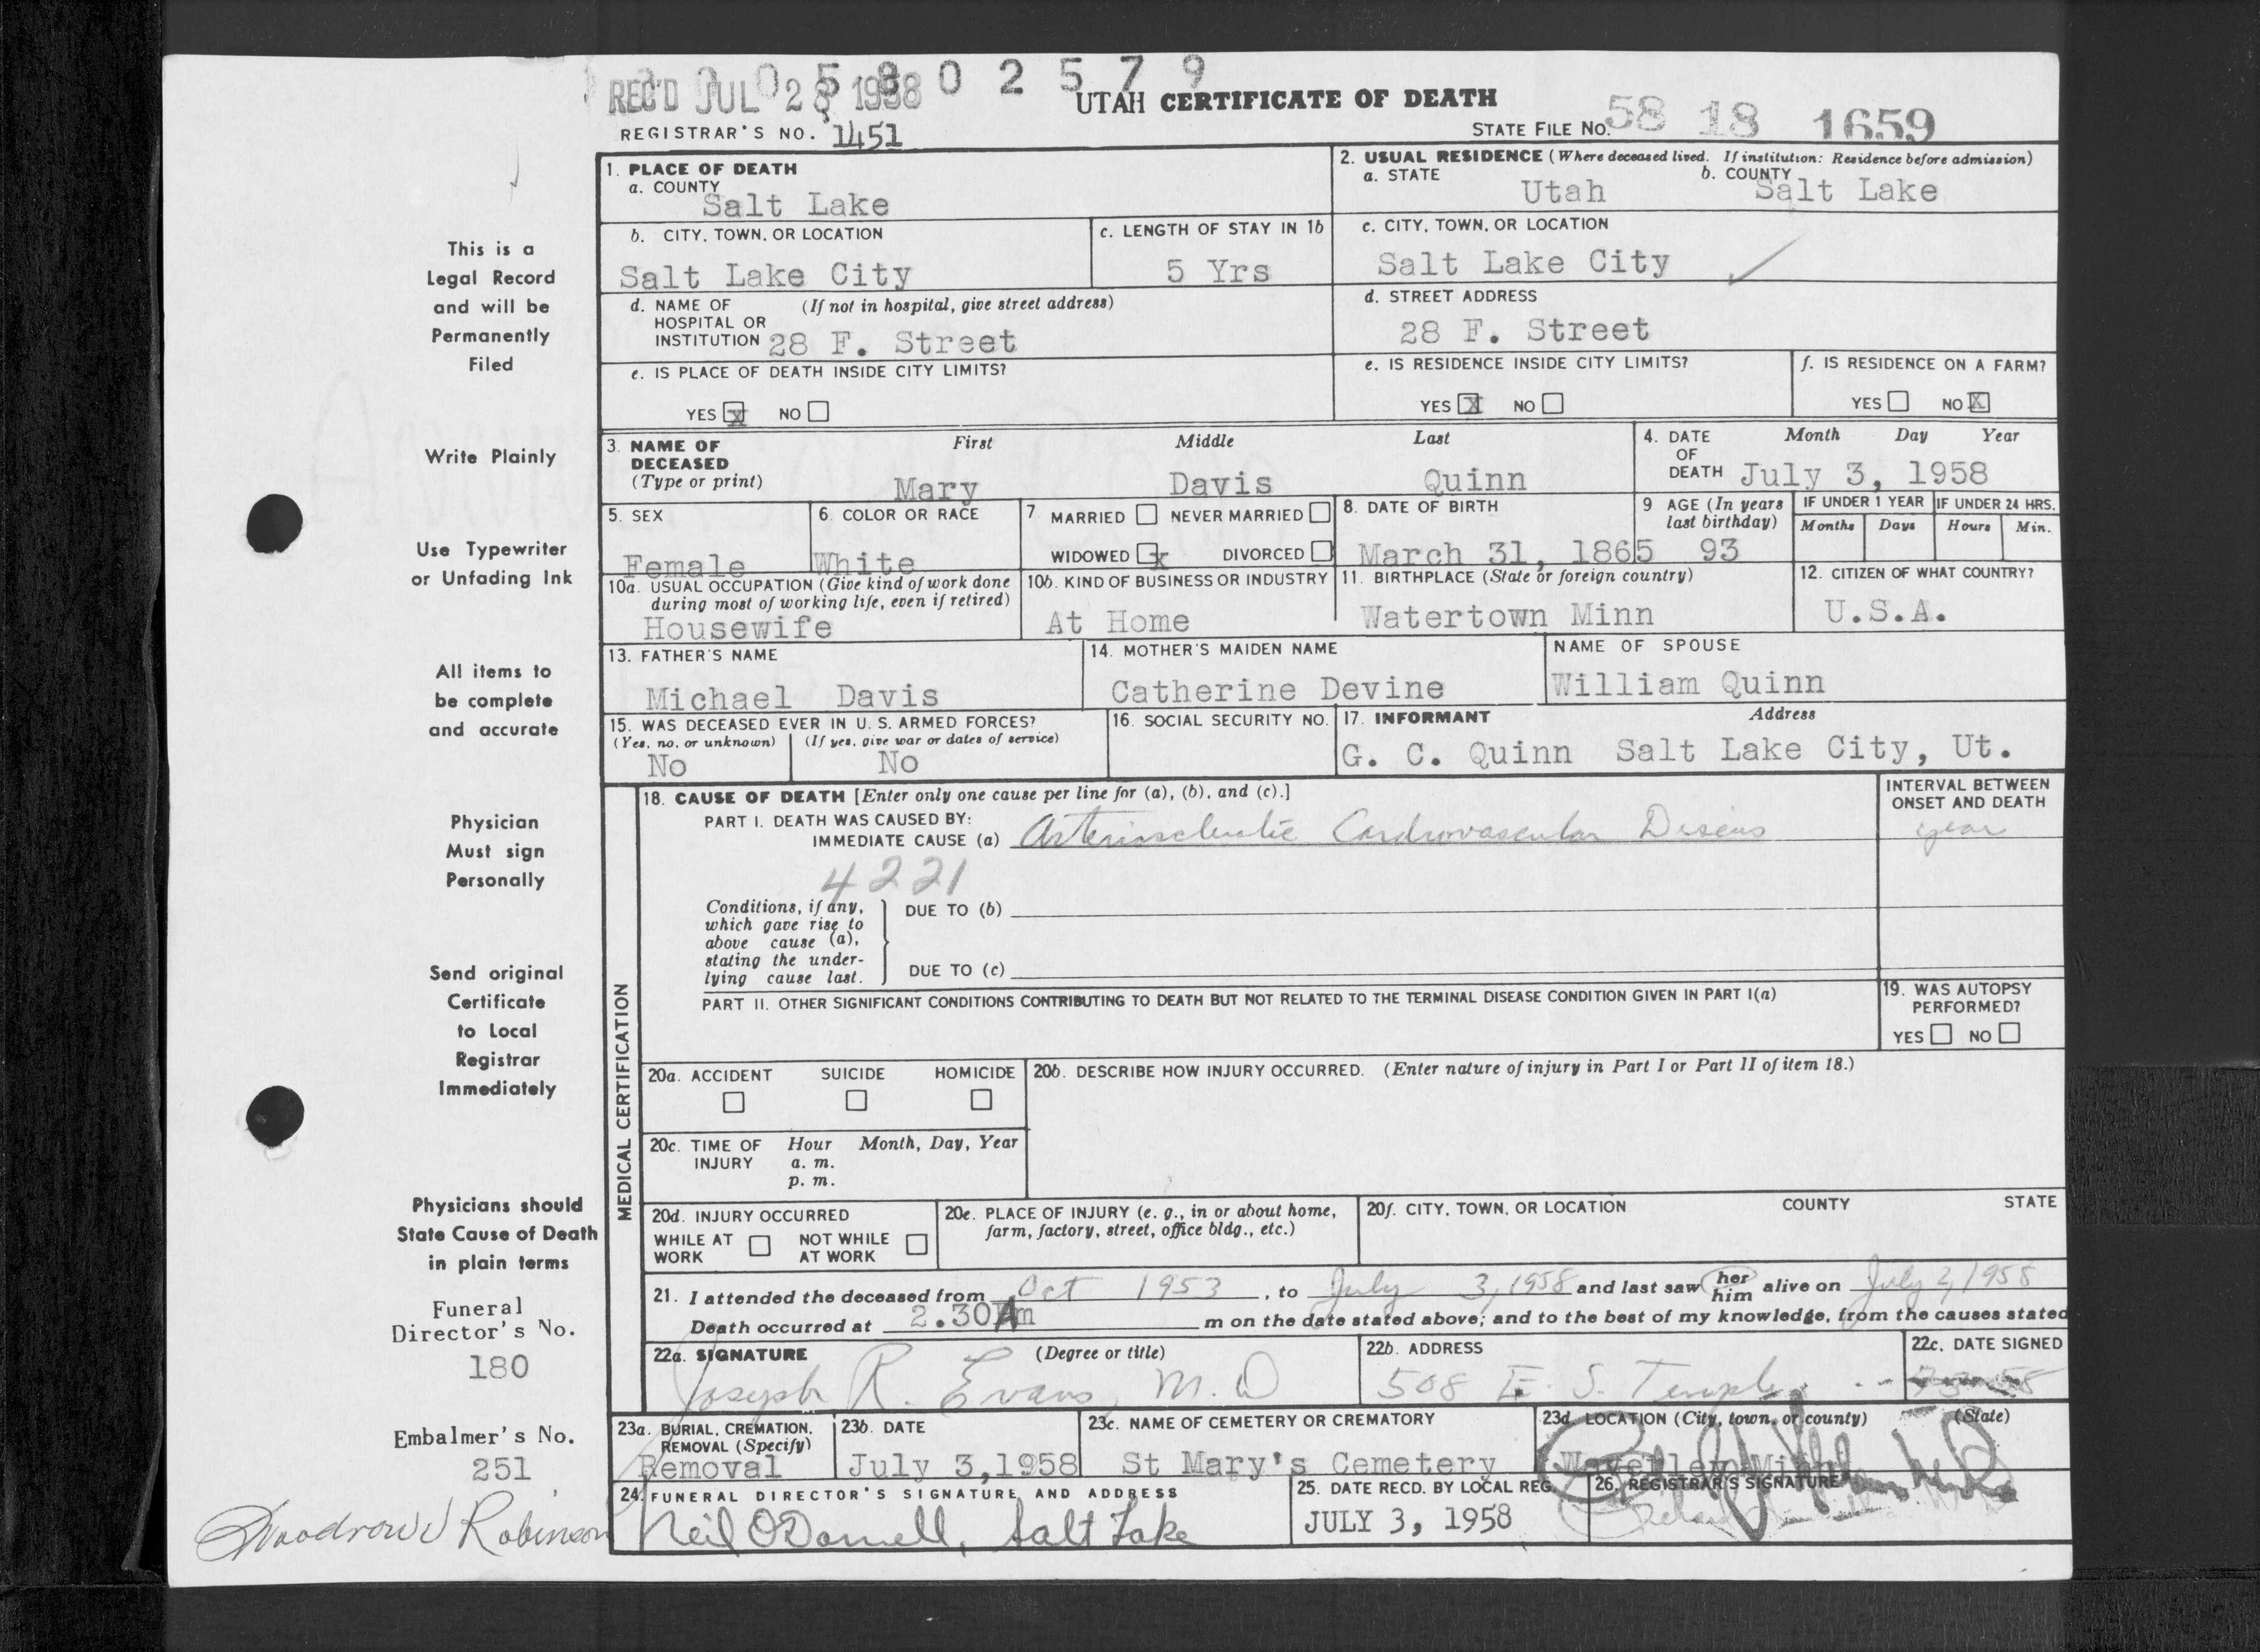 REC'D JUL 28 1958
5 8 0 2 5 7 9
UTAH CERTIFICATE OF DEATH
REGISTRAR'S NO. 1451
STATE FILE NO. 58 18 1659
This is a
Legal Record
and will be
Permanently
Filed
Write Plainly
Use Typewriter
or Unfading Ink
All items to
be complete
and accurate
Physician
Must sign
Personally
Send original
Certificate
to Local
Registrar
Immediately
Physicians should
State Cause of Death
in plain terms
Funeral
Director's No.
180
Embalmer's No.
251
Woodrow J Robinson
1. PLACE OF DEATH
a. COUNTY
Salt Lake
b. CITY, TOWN, OR LOCATION
Salt Lake City
c. LENGTH OF STAY IN 1b
5 Yrs
d. NAME OF (If not in hospital, give street address)
HOSPITAL OR
INSTITUTION 28 F. Street
e. IS PLACE OF DEATH INSIDE CITY LIMITS?
YES X NO
2. USUAL RESIDENCE (Where deceased lived. If institution: Residence before admission)
a. STATE Utah b. COUNTY Salt Lake
c. CITY, TOWN, OR LOCATION
Salt Lake City
d. STREET ADDRESS
28 F. Street
e. IS RESIDENCE INSIDE CITY LIMITS?
YES X NO
f. IS RESIDENCE ON A FARM?
YES NO X
3. NAME OF DECEASED (Type or print)
First Middle Last
Mary Davis Quinn
4. DATE OF DEATH Month Day Year
July 3, 1958
5. SEX
Female
6. COLOR OR RACE
White
7. MARRIED NEVER MARRIED
WIDOWED X DIVORCED
8. DATE OF BIRTH
March 31, 1865
9 AGE (In years last birthday)
93
IF UNDER 1 YEAR IF UNDER 24 HRS.
Months Days Hours Min.
10a. USUAL OCCUPATION (Give kind of work done
during most of working life, even if retired)
Housewife
10b. KIND OF BUSINESS OR INDUSTRY
At Home
11. BIRTHPLACE (State or foreign country)
Watertown Minn
12. CITIZEN OF WHAT COUNTRY?
U.S.A.
13. FATHER'S NAME
Michael Davis
14. MOTHER'S MAIDEN NAME
Catherine Devine
NAME OF SPOUSE
William Quinn
15. WAS DECEASED EVER IN U. S. ARMED FORCES?
(Yes, no, or unknown) (If yes, give war or dates of service)
No No
16. SOCIAL SECURITY NO.
17. INFORMANT Address
G. C. Quinn Salt Lake City, Ut.
MEDICAL CERTIFICATION
18. CAUSE OF DEATH [Enter only one cause per line for (a), (b), and (c).]
INTERVAL BETWEEN
ONSET AND DEATH
PART I. DEATH WAS CAUSED BY:
IMMEDIATE CAUSE (a) Arteriosclerotic Cardiovascular Diseas year
4221
Conditions, if any,
which gave rise to
above cause (a),
stating the under-
lying cause last.
DUE TO (b)
DUE TO (c)
PART II. OTHER SIGNIFICANT CONDITIONS CONTRIBUTING TO DEATH BUT NOT RELATED TO THE TERMINAL DISEASE CONDITION GIVEN IN PART I(a)
19. WAS AUTOPSY
PERFORMED?
YES NO
20a. ACCIDENT SUICIDE HOMICIDE
20b. DESCRIBE HOW INJURY OCCURRED. (Enter nature of injury in Part I or Part II of item 18.)
20c. TIME OF INJURY Hour Month, Day, Year
a. m.
p. m.
20d. INJURY OCCURRED
WHILE AT WORK NOT WHILE AT WORK
20e. PLACE OF INJURY (e. g., in or about home,
farm, factory, street, office bldg., etc.)
20f. CITY, TOWN, OR LOCATION COUNTY STATE
21. I attended the deceased from Oct 1953, to July 3, 1958 and last saw her him alive on July 2, 1958
Death occurred at 2.30 Am m on the date stated above; and to the best of my knowledge, from the causes stated
22a. SIGNATURE (Degree or title)
Joseph R. Evans, M.D
22b. ADDRESS
508 E. S. Temple
22c. DATE SIGNED
7-3-58
23a. BURIAL, CREMATION,
REMOVAL (Specify)
Removal
23b. DATE
July 3,1958
23c. NAME OF CEMETERY OR CREMATORY
St Mary's Cemetery
23d. LOCATION (City, town, or county) (State)
Waverley Minn
24. FUNERAL DIRECTOR'S SIGNATURE AND ADDRESS
Neil O'Donnell, Salt Lake
25. DATE RECD. BY LOCAL REG.
JULY 3, 1958
26. REGISTRAR'S SIGNATURE